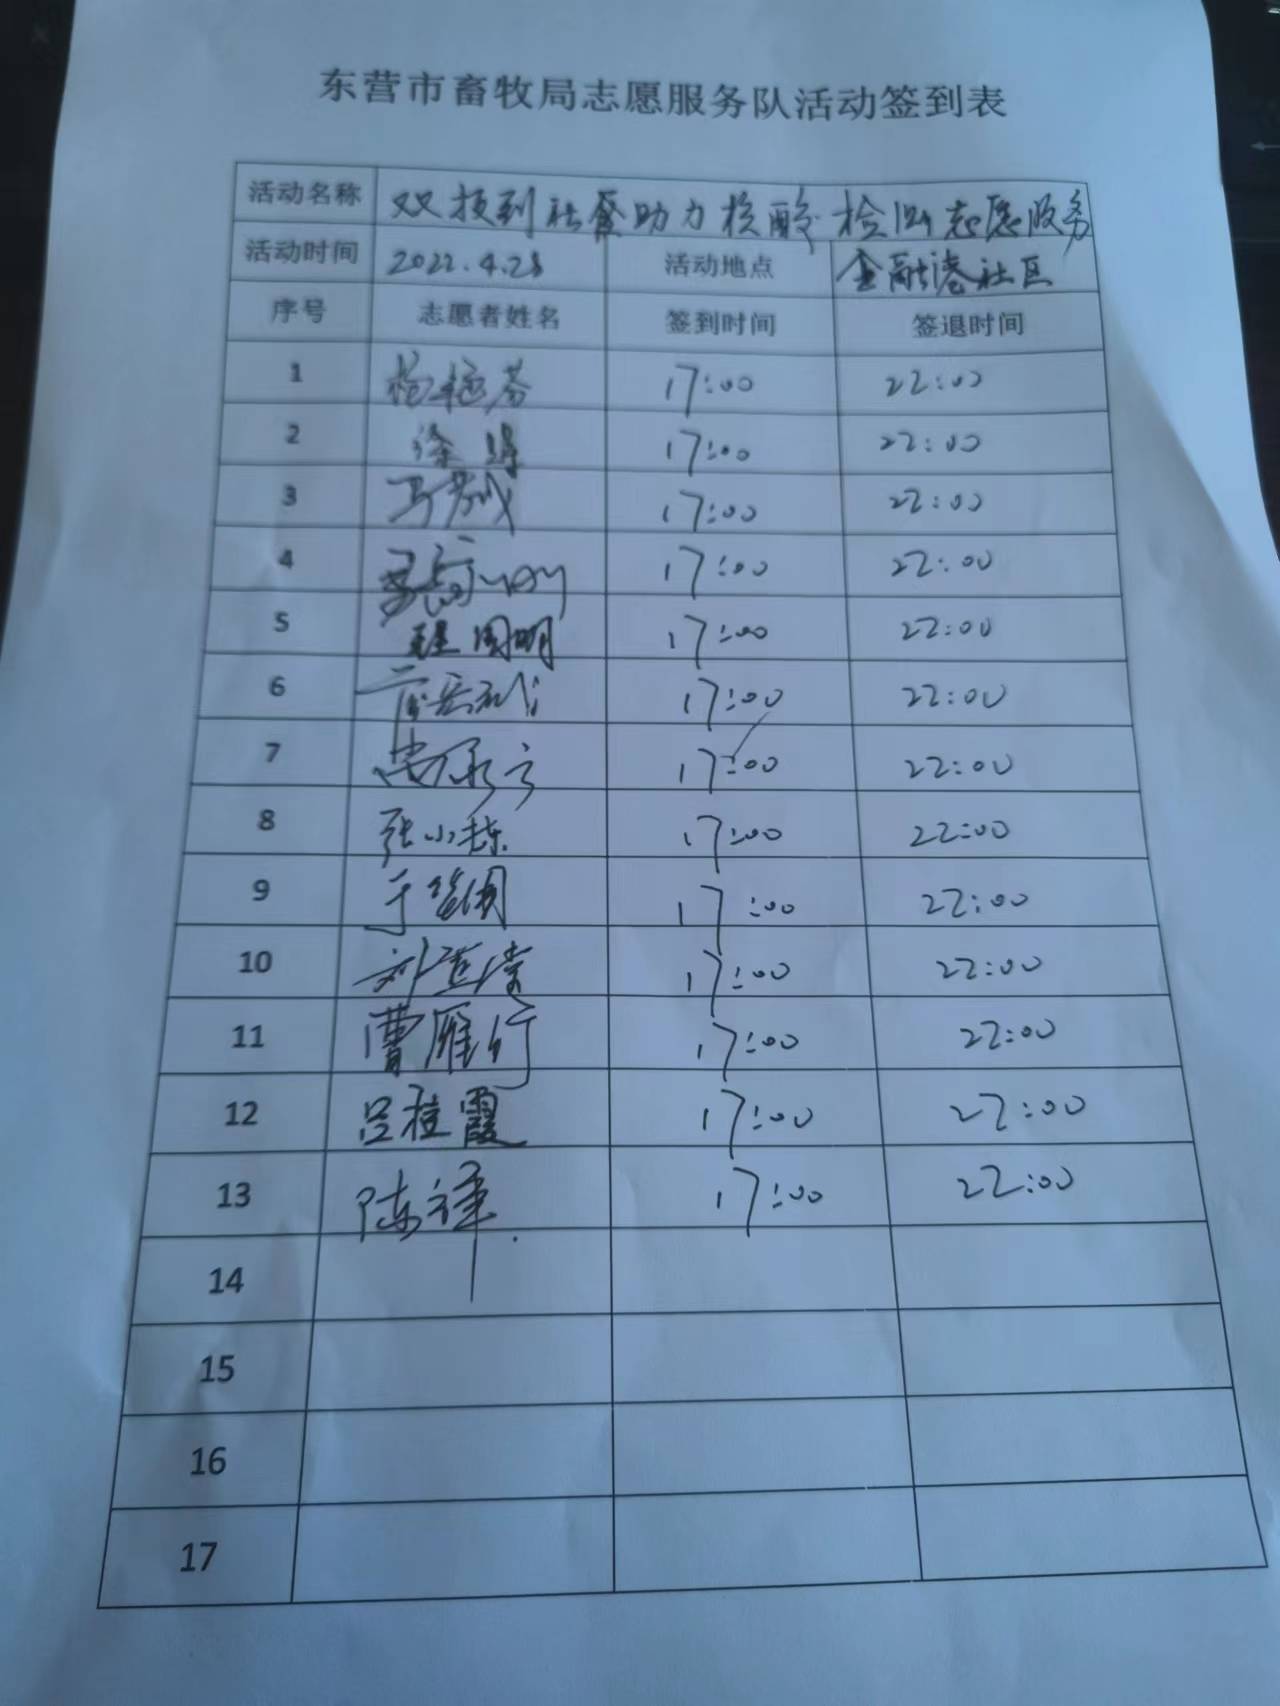 东营市畜牧局志愿服务队活动签到表
活动名称 双报到社区助力核酸检测志愿服务
活动时间 2022.4.28 活动地点 金融港社区
序号 志愿者姓名 签到时间 签退时间
1 17:00 22:00
2 徐 17:00 22:00
3 17:00 22:00
4 17:00 22:00
5 国明 17:00 22:00
6 17:00 22:00
7 17:00 22:00
8 张小栋 17:00 22:00
9 于 17:00 22:00
10 刘 17:00 22:00
11 曹雁行 17:00 22:00
12 吕桂霞 17:00 22:00
13 陈译 17:00 22:00
14
15
16
17